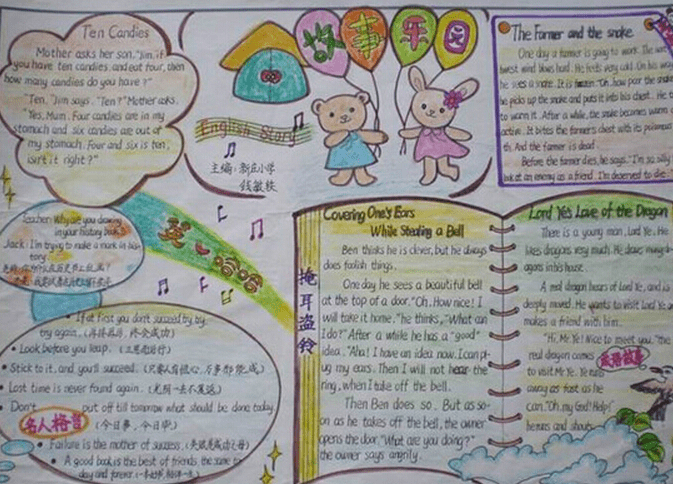 Ten Candies
Mother asks her son, "Jim, if
you have ten candies, and eat four, then
how many candies do you have?"
"Ten," Jim says. "Ten?" Mother asks.
"Yes, Mum. Four candies are in my
stomach and six candies are out of
my stomach. Four and six is ten,
isn't it right?"
故事乐园
English Story
主编:新庄小学
钱敏轶
The Farmer and the snake
One day a farmer is going to work. The
west wind blows hard. He feels very cold. On his way
he sees a snake. It is frozen. "Oh, how poor the snake
he picks up the snake and puts it into his chest. He t
to warm it. After a while, the snake becomes warm
active. It bites the farmer's chest with its poisonous
th. And the farmer is dead.
Before the farmer dies, he says, "I'm so silly
look at an enemy as a friend. I'm deserved to die."
Teacher: Why are you drawing
in your history book?
Jack: I'm trying to make a mark in his
tory.
英 哈哈
If at first you don't succeed, try, try,
try again. (再接再厉,终会成功)
Look before you leap. (三思而后行)
Stick to it, and you'll succeed. (只要人有恒心,万事都能成)
Lost time is never found again. (光阴一去不复返)
Don't put off till tomorrow what should be done today.
名人格言 (今日事,今日毕)
Failure is the mother of success. (失败是成功之母)
A good book is the best of friends, the same to
day and forever.
掩耳盗铃
Covering One's Ears
While Stealing a Bell
Ben thinks he is clever, but he always
does foolish things.
One day he sees a beautiful bell
at the top of a door. "Oh, How nice! I
will take it home," he thinks, "What can
I do?" After a while he has a "good"
idea. "Aha! I have an idea now. I can pl-
ug my ears. Then I will not hear the
ring, when I take off the bell.
Then Ben does so. But as so-
on as he takes off the bell, the owner
opens the door. "What are you doing?"
the owner says angrily.
Lord Ye's Love of the Dragon
There is a young man, Lord Ye. He
likes dragons very much. He draws many dr
agons in his house.
A real dragon hears of Lord Ye, and is
deeply moved. He wants to visit Lord Ye an
makes a friend with him.
"Hi, Mr Ye! Nice to meet you," the
real dragon comes
to visit Mr Ye. Ye runs
away as fast as he
can. "Oh, my God! Help!"
he runs and shouts.
成语故事